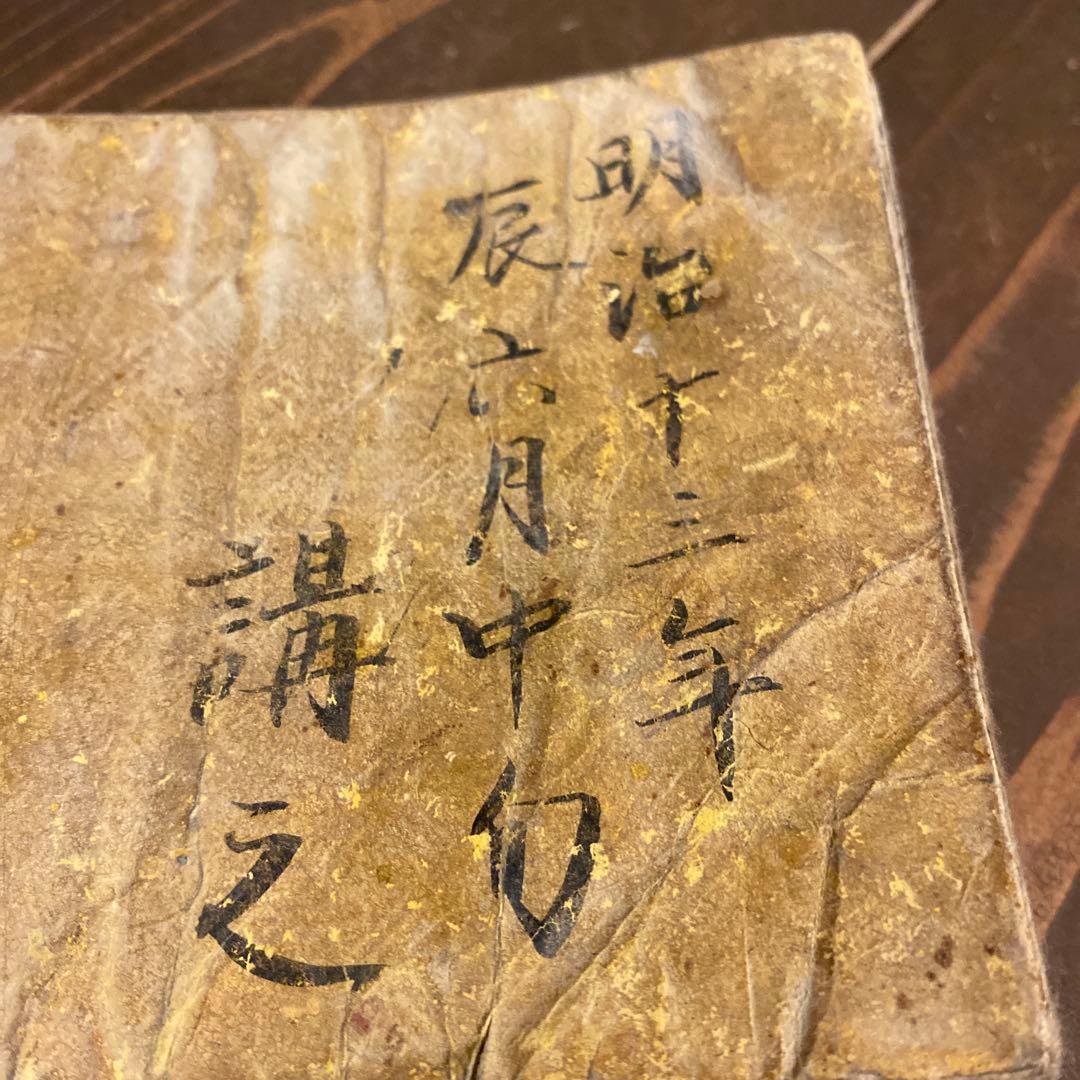 明治十三年
辰六月中旬
講之